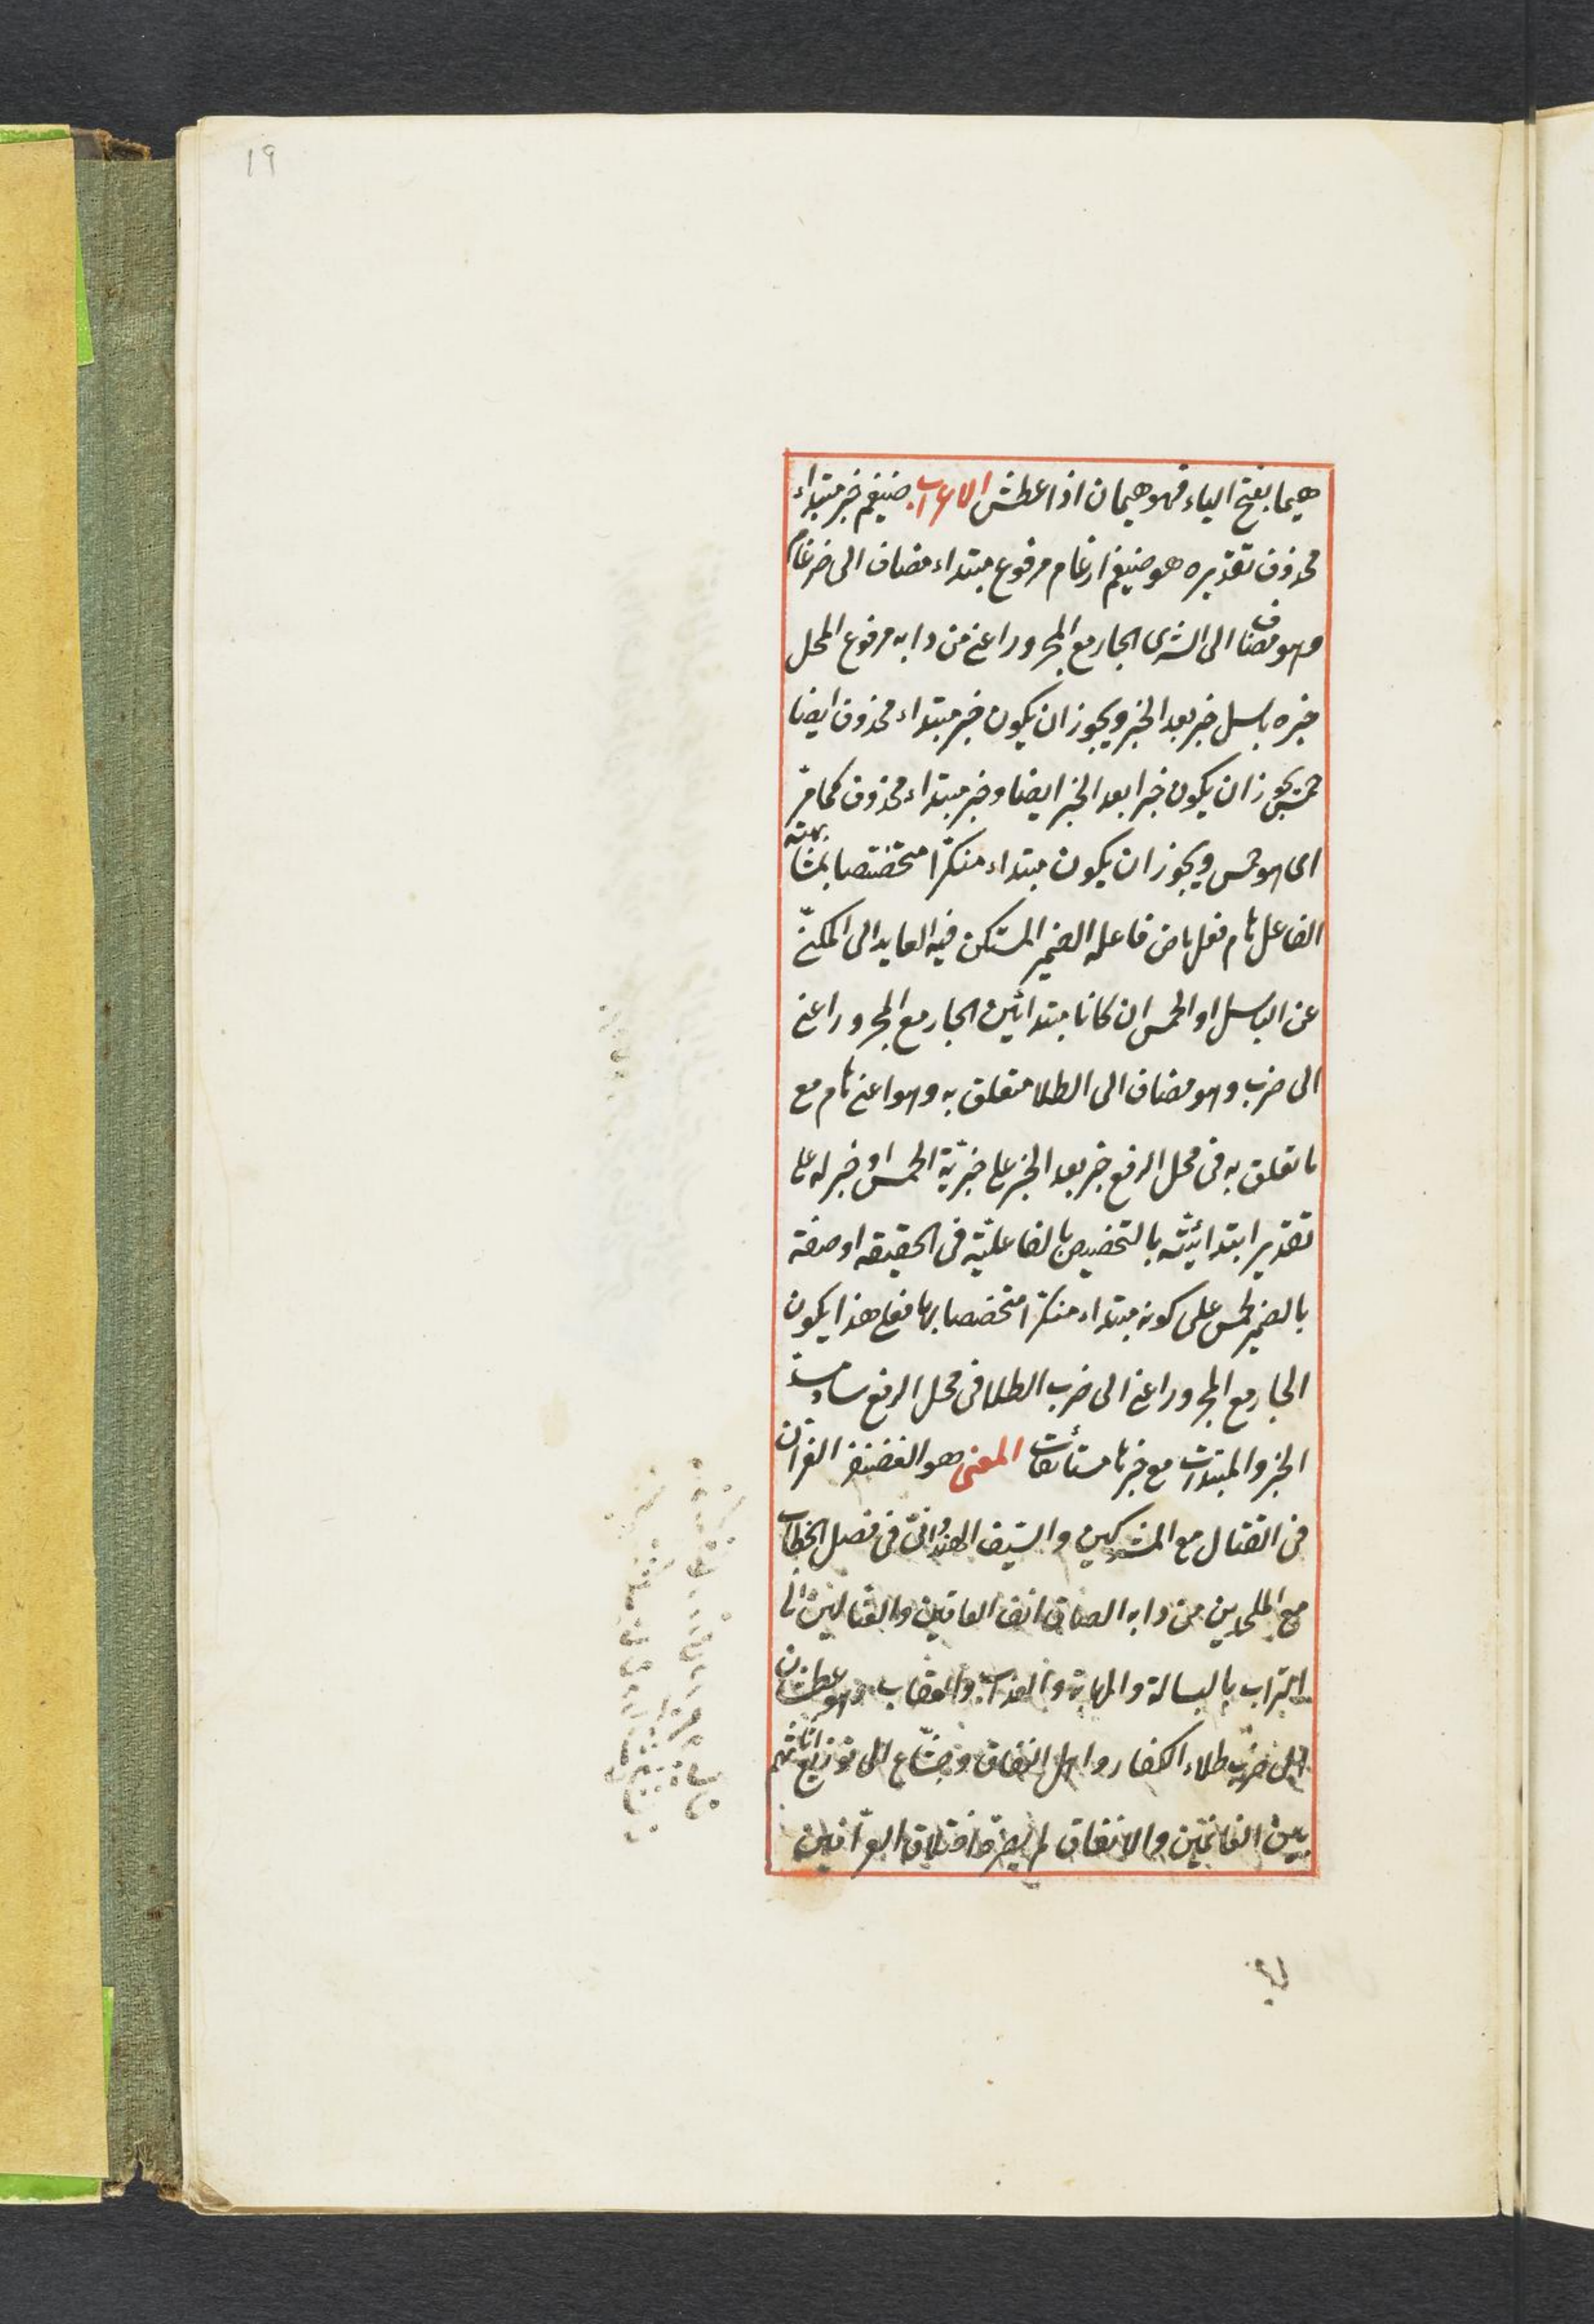 19
هيما بفتح الياء فهو هيمان اذا عطش الاعراب ضيغم خبر مبتداء
محذوف تقديره هو ضيغم ارغام مرفوع مبتداء مضاف الى ضرغام
وهو مضاف الى الشرى الجار مع المجرور اعنى من دابه مرفوع المحل
خبره باسل خبر بعد الخبر ويجوز ان يكون خبر مبتداء محذوف ايضا
حمس يجوز ان يكون خبرا بعد الخبر ايضا وخبر مبتداء محذوف كما مرّ
اى هو حمس ويجوز ان يكون مبتداء منكرّا متخصصا بمشابهته
الفاعل هام فعل ماض فاعله الضمير المستكن فيه العايد الى المكنىّ
عن الباسل او الحمس ان كانا مبتدائين الجار مع المجرور اعنى
الى ضرب وهو مضاف الى الطلا متعلق به وهو اعنى هام مع
ما تعلق به فى محل الرفع خبر بعد الخبر على خبريّة الحمس او خبر له على
تقدير ابتدائيّته بالتخصيص بالفاعليّة فى الحقيقه او صفة
بالضمير لحمس على كونه مبتداء منكرّا متخصصا بها فعلى هذا يكون
الجار مع المجرور اعنى الى ضرب الطلا فى محل الرفع ساد مسدّ
الخبر والمبتدآت مع خبرها مستأنفات المعنى هو الغضنفر
فى القتال مع المشركين والسّيف الهندوانىّ فى فصل الخطاب
مع الملحدين من دابه الصاق انف العاتين والقتالين الى
التراب بالبسالة والمهابة والعذاب والعقاب وهو عطشان
الى ضرب طلاء الكفار واهل النفاق وجشّاع الى توزيع اثاثهم
بين الغانمين والانفاق لم يصرفه اختلاق العرّافين